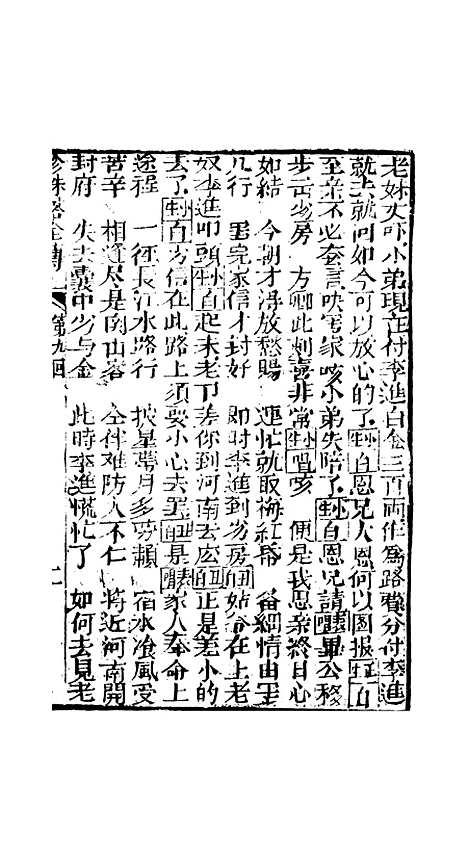 老妹丈吓小弟現在付李進白金三百両作為路費分付李進
就去就回如今可以放心的了小生白恩兄大恩何以圖报生白
至亲不必套言快寫家咳小弟失陪了小生白恩兄請唱畢公移
步出房 方卿此刻喜非常小生唱咳 便是我思亲終日心
如結 今朝才淂放愁腸 連忙就取梅紅番 备細情由呈
几行 寫完家信才封好 即时李進到房丑姑爷在上老
奴李進叩頭小生白起来老丁差你到河南去应丑正是差小的
去了小生白方信在此路上須要小心去罢丑是唱家人奉命上
途程 一徑長江水路行 披星帶月多勞賴 宿水飡風受
苦辛 相逢尽是南山客 仝伴难防人不仁 将近河南開
封府 失去囊中与金 此時李進慌忙了 如何去見老
珍珠塔全傳 第九回